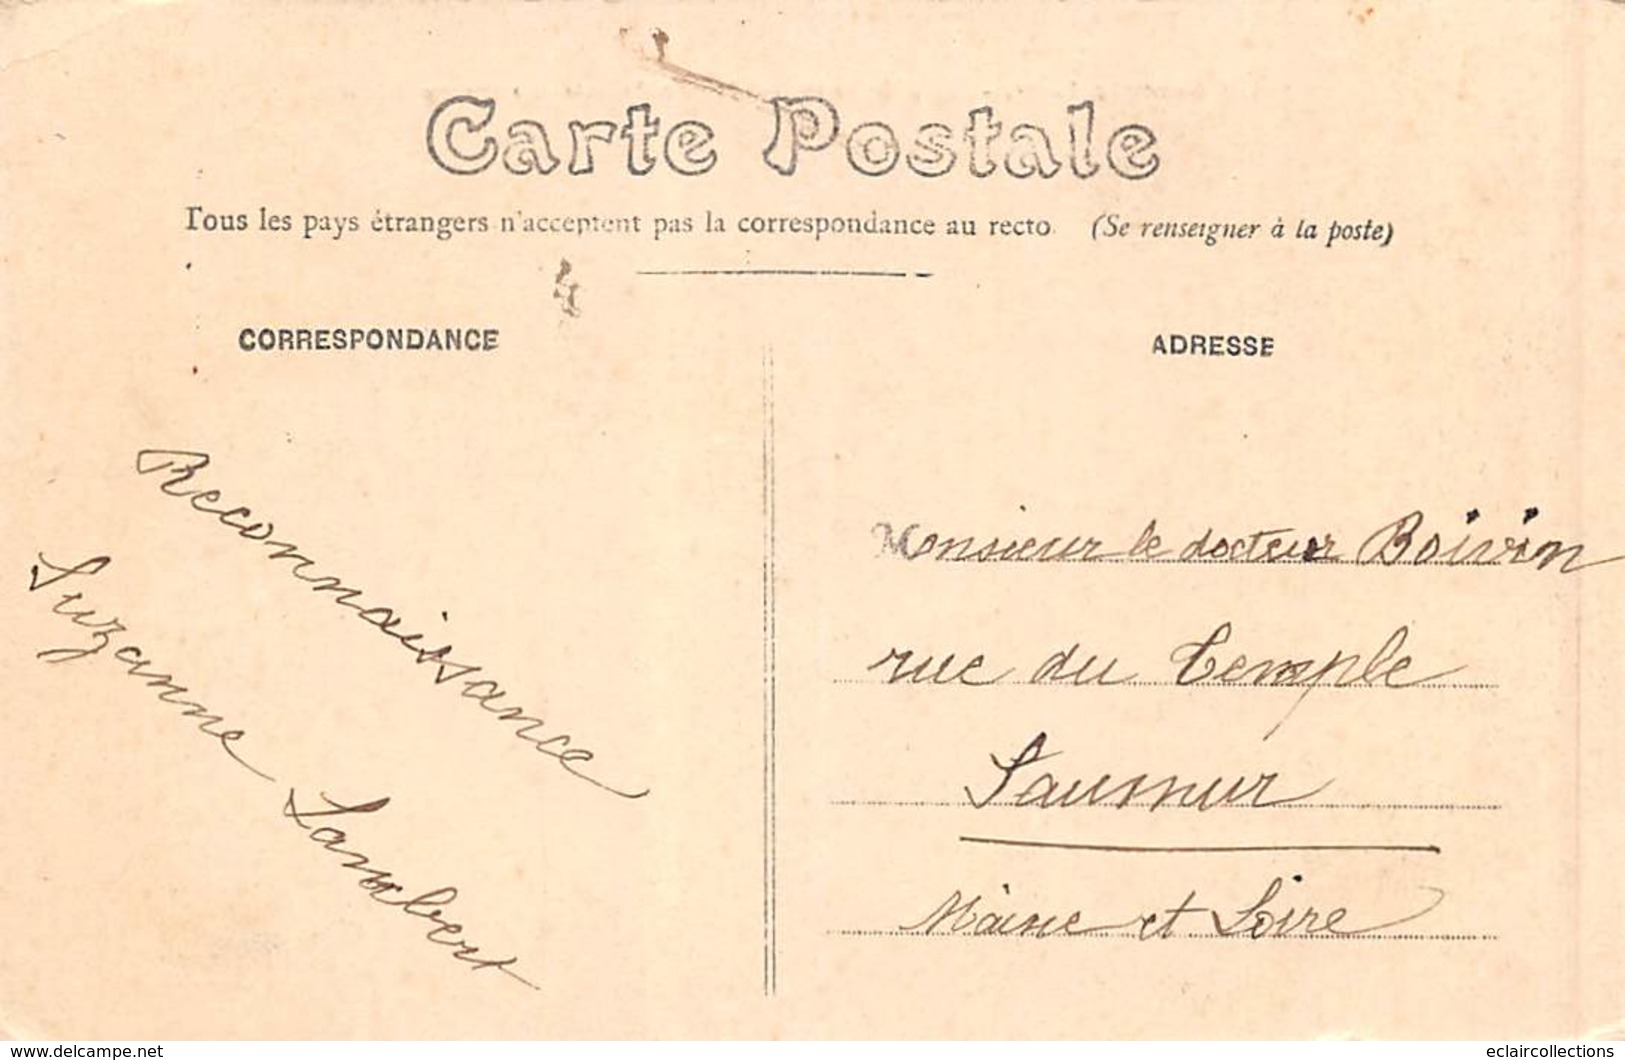 Carte Postale
Tous les pays étrangers n'acceptent pas la correspondance au recto. (Se renseigner à la poste)
4
CORRESPONDANCE
Reconnaissance
Suzanne Lambert
ADRESSE
Monsieur le docteur Boivin
rue du Temple
Saumur
Maine et Loire
www.delcampe.net
eclaircollections